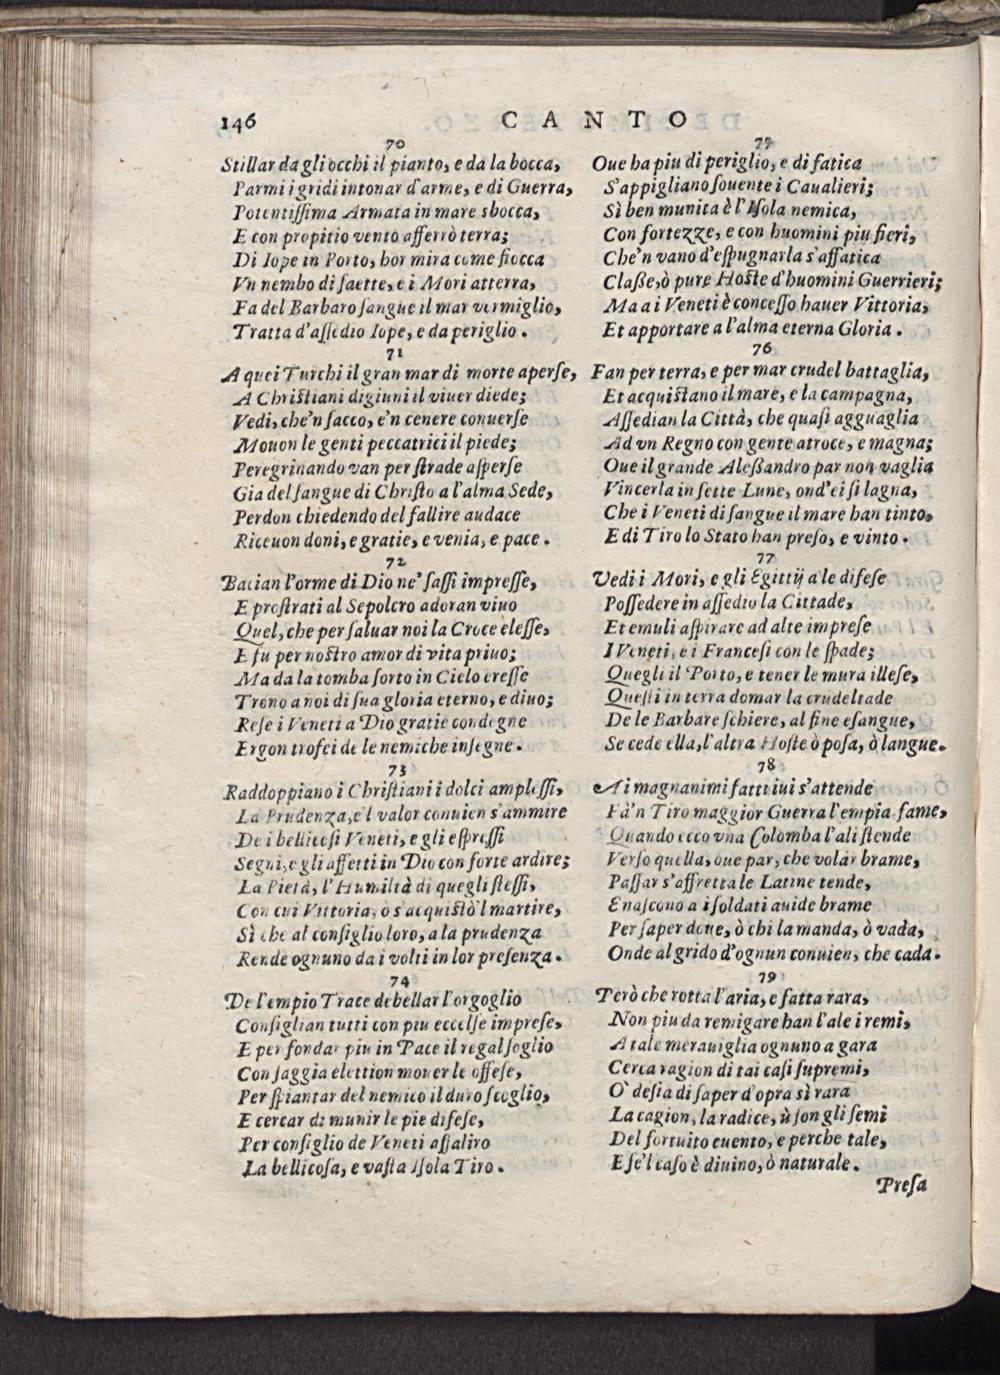 146
CANTO
70
Stillar da gli occhi il pianto, e da la bocca,
Parmi i gridi intonar d'arme, e di Guerra,
Potentiſſima Armata in mare sbocca,
E con propitio vento afferrò terra;
Di Iope in Porto, hor mira come fiocca
Vn nembo di ſaette, e i Mori atterra,
Fa del Barbaro ſangue il mar vermiglio,
Tratta d'aſſedio Iope, e da periglio.
71
A quei Turchi il gran mar di morte aperſe,
A Chriſtiani digiuni il viuer diede;
Vedi, che'n ſacco, e'n cenere conuerſe
Mouon le genti peccatrici il piede;
Peregrinando van per ſtrade aſperſe
Gia del ſangue di Chriſto a l'alma Sede,
Perdon chiedendo del fallire audace
Riceuon doni, e gratie, e venia, e pace.
72
Bacian l'orme di Dio ne' ſaſſi impreſſe,
E proſtrati al Sepolcro adoran viuo
Quel, che per ſaluar noi la Croce eleſſe,
E fu per noſtro amor di vita priuo;
Ma da la tomba ſorto in Cielo ereſſe
Trono a noi di ſua gloria eterno, e diuo;
Reſe i Veneti a Dio gratie condegne
Ergon trofei de le nemiche inſegne.
73
Raddoppiano i Chriſtiani i dolci ampleſſi,
La Prudenza, e'l valor conuien s'ammire
De i bellicoſi Veneti, e gli eſpreſſi
Segni, e gli affetti in Dio con forte ardire;
La Pietà, l'Humiltà di quegli ſteſſi,
Con cui Vittoria, o s'acquiſtò'l martire,
Sì che al conſiglio loro, a la prudenza
Rende ognuno da i volti in lor preſenza.
74
De l'empio Trace debellar l'orgoglio
Conſiglian tutti con piu eccelſe impreſe,
E per fondar piu in Pace il regal ſoglio
Con ſaggia elettion mouer le offeſe,
Per ſpiantar del nemico il duro ſcoglio,
E cercar di munir le pie difeſe,
Per conſiglio de Veneti aſſaliro
La bellicoſa, e vaſta Iſola Tiro.
75
Oue ha piu di periglio, e di fatica
S'appigliano ſouente i Caualieri;
Sì ben munita è l'Iſola nemica,
Con fortezze, e con huomini piu fieri,
Che'n vano d'eſpugnarla s'affatica
Claſſe, ò pure Hoſte d'huomini Guerrieri;
Ma a i Veneti è conceſſo hauer Vittoria,
Et apportare a l'alma eterna Gloria.
76
Fan per terra, e per mar crudel battaglia,
Et acquiſtano il mare, e la campagna,
Aſſedian la Città, che quaſi agguaglia
Ad vn Regno con gente atroce, e magna;
Oue il grande Aleſſandro par non vaglia
Vincerla in ſette Lune, ond'ei ſi lagna,
Che i Veneti di ſangue il mare han tinto,
E di Tiro lo Stato han preſo, e vinto.
77
Vedi i Mori, e gli Egittij a le difeſe
Poſſedere in aſſedio la Cittade,
Et emuli aſpirare ad alte impreſe
I Veneti, e i Franceſi con le ſpade;
Quegli il Porto, e tener le mura illeſe,
Queſti in terra domar la crudeltade
De le Barbare ſchiere, al fine eſangue,
Se cede ella, l'altra Hoſte ò poſa, ò langue.
78
A i magnanimi fatti iui s'attende
Fà'n Tiro maggior Guerra l'empia fame,
Quando ecco vna Colomba l'ali ſtende
Verſo quella, oue par, che volar brame,
Paſſar s'affretta le Latine tende,
E naſcono a i ſoldati auide brame
Per ſaper doue, ò chi la manda, ò vada,
Onde al grido d'ognun conuien, che cada.
79
Però che rotta l'aria, e fatta rara,
Non piu da remigare han l'ale i remi,
A tale merauiglia ognuno a gara
Cerca ragion di tai caſi ſupremi,
O' deſia di ſaper d'opra sì rara
La cagion, la radice, ù ſon gli ſemi
Del fortuito euento, e perche tale,
E ſe'l caſo è diuino, ò naturale.
Preſa